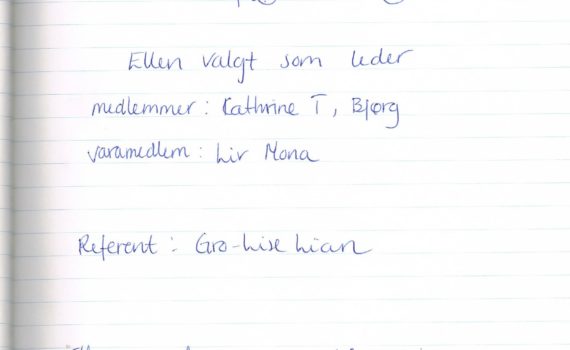 Ellen valgt som leder
medlemmer : Cathrine T, Bjørg
varamedlem : Liv Mona
Referent : Gro-Lise Lian